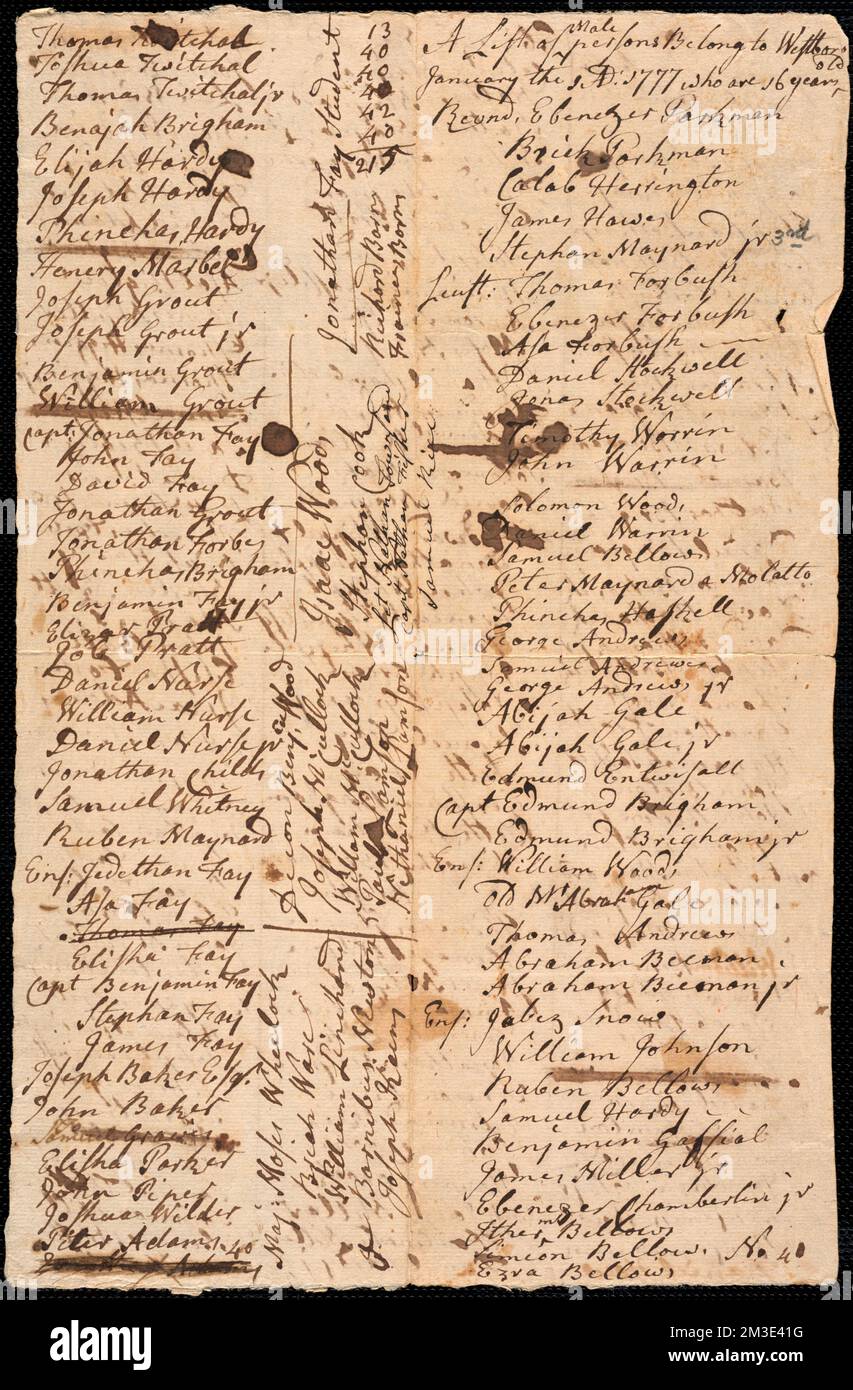 Thomas Twitchal
Joshua Twitchal
Thomas Twitchal jr
Benajah Brigham
Elijah Hardy
Joseph Hardy
Phinehas Hardy
Henery Marbel
Joseph Grout
Joseph Grout jr
Benjamin Grout
William Grout
Capt: Jonathan Fay
John Fay
David Fay
Jonathan Grout
Jonathan Forbes
Phinehas Brigham
Benjamin Fay jr
Elizer Pratt
Joel Pratt
Daniel Nurse
William Nurse
Daniel Nurse jr
Jonathan Childs
Samuel Whitney
Ruben Maynard
Ens: Jedethan Fay
Asa Fay
Thomas Fay
Elisha Fay
Capt Benjamin Fay
Stephan Fay
James Fay
Joseph Baker Esqr
John Baker
Samuel
Elisha Parker
John Piper
Joshua Wilder
Peter Adams 40
13
40
40
40
42
40
215
Jonathan Fay Student
Richard Barns
Francies Barns
Isaac Wood,
Stephan Cook
Samuel Rice
Decon Benj Wood
Joseph McCulloch
William McCulloch
Paul Lamson
Nathaniel Lamson
Maj: Moses Wheelock
William Linehand
Barnibus Newton
Joseph
A List of Male persons Belong to Westboro
January the 1 AD: 1777 who are 16 years old
Revnd, Ebenezer Parkman
Brick Parkman
Calab Herrington
James Hawes
Stephan Maynard jr 3rd
Lieut: Thomas Forbush
Ebenezer Forbush
Asa Forbush
Daniel Stockwell
Jonas Stockwell
Timothy Warrin
John Warrin
Solomon Wood,
Daniel Warrin
Samuel Bellows
Peter Maynard a Molatto
Phinehas Haskell
George Andrews
Samuel Andrews
George Andrews jr
Abijah Gale
Abijah Gale jr
Edmund Entwisall
Capt Edmund Brigham
Edmund Brigham jr
Ens: William Wood,
old Mr Abraham Gale
Thomas Andrews
Abraham Beeman
Abraham Beeman jr
Ens: Jabez Snow
William Johnson
Ruben Bellows
Samuel Hardy
Benjamin Gassial
James Millar jr
Ebenezer Chamberlin jr
Bellows
Simeon Bellows No. 40
Ezra Bellows
alamy
Image ID: 2M3E41G
www.alamy.com